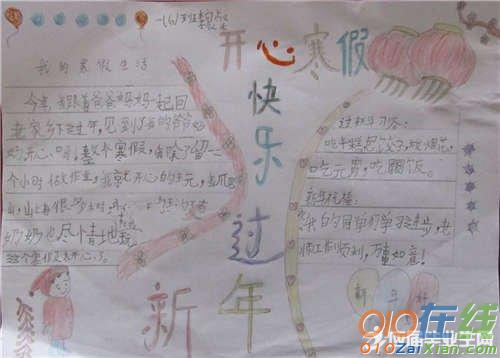 一(6)班
开心寒假
快乐过
新年
我的寒假生活
今年,我跟着爸爸妈妈一起回
老家乡下过年,见到了爷爷
奶奶开心,整个寒假,每除了留一
个小时做作业,就开心的玩,去爬
山,山上有很多
奶奶也尽情地玩
这个寒假真开心。
过年习俗:
吃年糕,包饺子,放烟花,
吃元宵,吃腊饭。
新年祝福:
我的同学们学习进步,老
师工作顺利,万事如意!
新年好
010在线
010ZaiXian.com
应届毕业生网